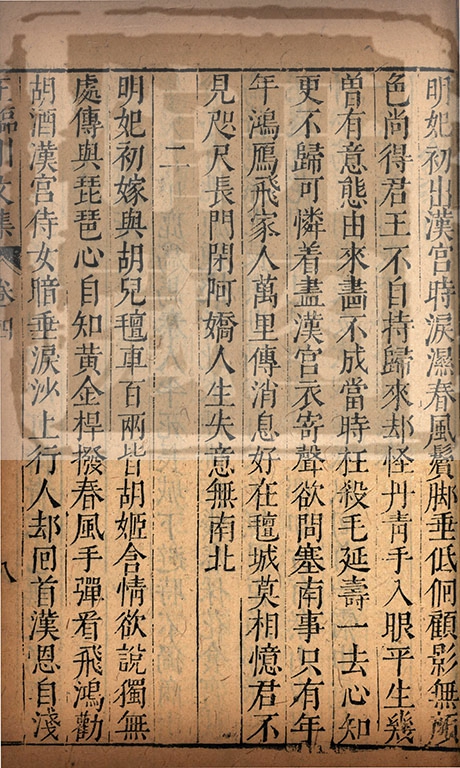 明妃初出漢宮時淚濕春風鬢脚垂低佪顧影無顏
色尚得君王不自持歸來却怪丹青手入眼平生幾
曾有意態由來畵不成當時枉殺毛延壽一去心知
更不歸可憐着盡漢宮衣寄聲欲問塞南事只有年
年鴻鴈飛家人萬里傳消息好在氊城莫相憶君不
見咫尺長門閉阿嬌人生失意無南北
二
明妃初嫁與胡兒氊車百兩皆胡姬含情欲說獨無
處傳與琵琶心自知黃金桿撥春風手彈看飛鴻勸
胡酒漢宮侍女暗垂淚沙上行人却回首漢恩自淺
王臨川文集 卷四 八